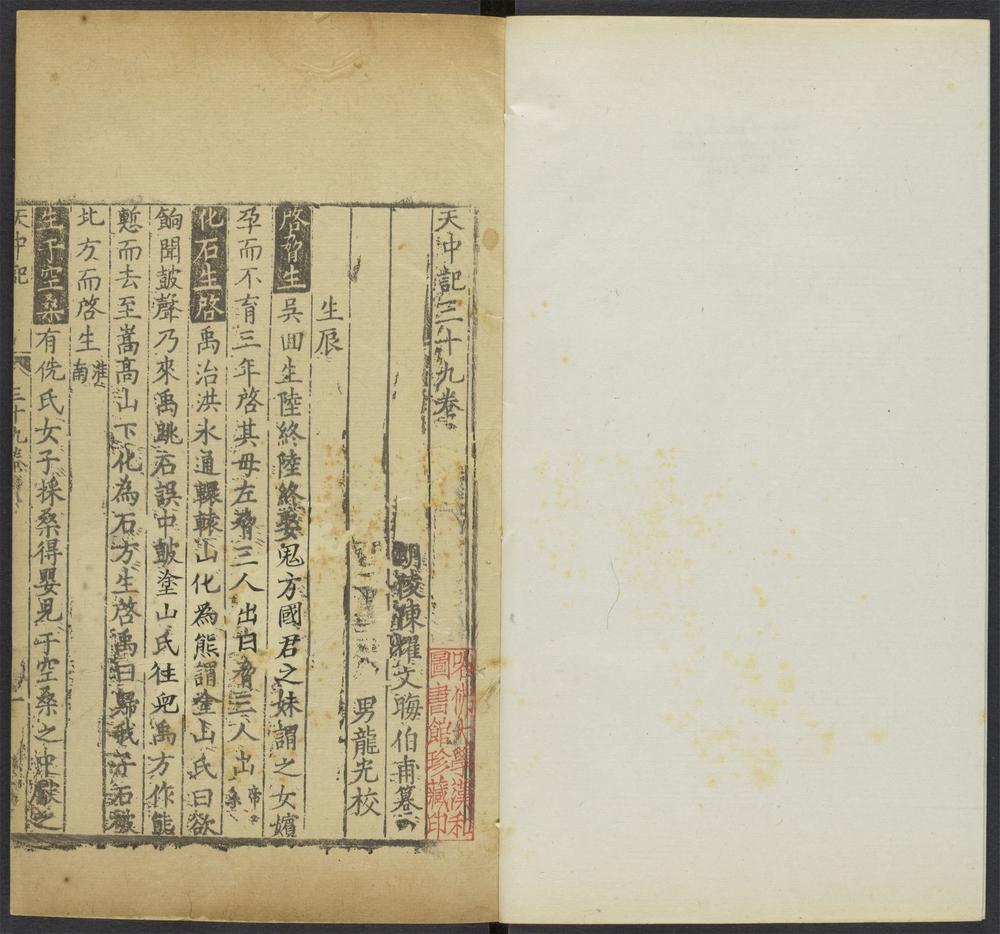 天中記三十九卷
朗陵陳耀文晦伯甫纂
男龍光校
生辰
啓脅生吳回生陸終陸終娶鬼方國君之妹謂之女嬪
孕而不育三年啓其母左脅三人出曰脅三人出帝系
化石生啓禹治洪水通轘轅山化為熊謂塗山氏曰欲
餉聞皷聲乃來禹跳石誤中皷塗山氏往見禹方作熊
慙而去至嵩高山下化為石方生啓禹曰歸我子石破
北方而啓生淮南
生于空桑有侁氏女子採桑得嬰兒于空桑之中獻之
天中記 三十九卷 一
哈佛大學漢和
圖書館珍藏印